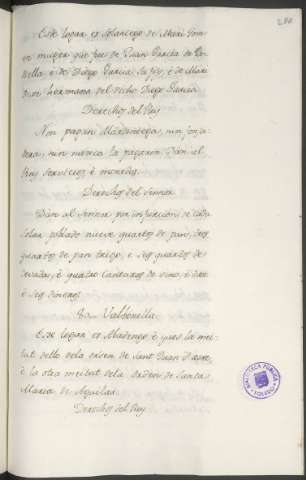 280
Este logar es solariego de Mari Gon
muger que fue de Juan Garcia de Co
sella è de Diego Garcia su fijo, è de Mari
Dias hermana del dicho Diego Garcia
Derechos del Rey
Non pagan Martiniega, nin fonsa
dera, nin nunca la pagaron. Dan al
Rey servicios è monedas.
Derechos del Sennor
Dan al Sennor por infurcion, de cada
solar poblado nueve quartos de pan, tres
quartos de pan trigo, e seis quartos de
cevada, è quatro cantaras de vino, è
è seis dineros
Valdonilla
Este logar es Abadengo è ques la mei
tat dello dela orden de Sant Juan d'acre,
è la otra meitat dela orden de Santa
Maria de Aguilar
Derechos del Rey
BIBLIOTECA PUBLICA
TOLEDO